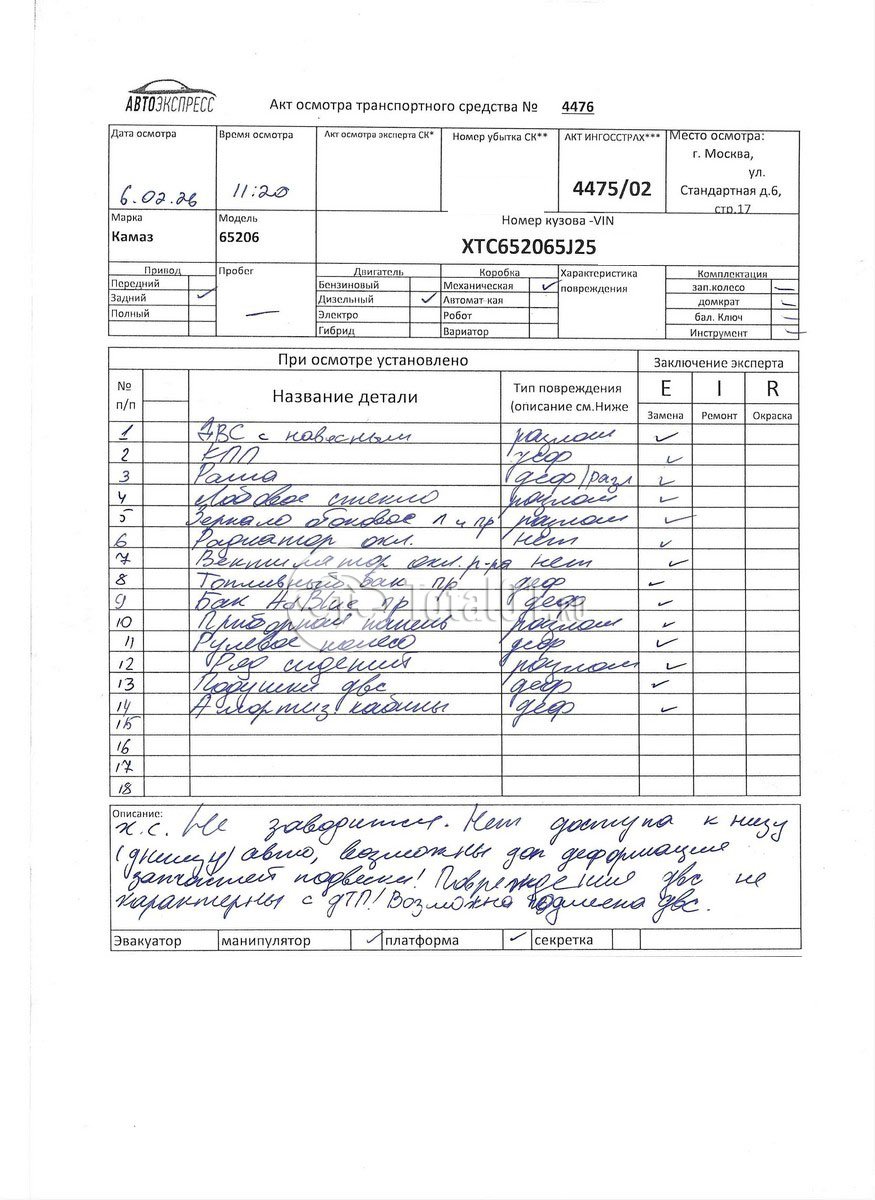 АВТОЭКСПРЕСС
Акт осмотра транспортного средства № 4476
Дата осмотра Время осмотра Акт осмотра эксперта СК* Номер убытка СК** АКТ ИНГОССТРАХ*** Место осмотра:
г. Москва,
ул.
6.02.26 11:20 4475/02 Стандартная д.6,
стр.17
Марка Модель Номер кузова -VIN
Камаз 65206 XTC652065J25
Привод Пробег Двигатель Коробка Характеристика Комплектация
Передний Бензиновый Механическая ✓ повреждения зап.колесо —
Задний ✓ — Дизельный ✓ Автомат-кая домкрат —
Полный Электро Робот бал. Ключ —
Гибрид Вариатор Инструмент —
При осмотре установлено Заключение эксперта
№ п/п Название детали Тип повреждения E I R
(описание см.Ниже Замена Ремонт Окраска
1 ДВС с навесным разлом ✓
2 КПП деф ✓
3 Рама деф/разл ✓
4 Лобовое стекло разлом ✓
5 Зеркало боковое л и пр разлом ✓
6 Радиатор охл. нет ✓
7 Вентилятор охл. р-ра нет ✓
8 Топливный бак пр деф ✓
9 Бак AdBlue пр деф ✓
10 Приборная панель разлом ✓
11 Рулевое колесо деф ✓
12 Ряд сидений разлом ✓
13 Подушки двс деф ✓
14 Амортиз кабины деф ✓
15
16
17
18
Описание:
х.с. Не заводится. Нет доступа к низу
(днищу) авто, возможны доп деформации
запчастей подвески! Повреждения двс не
характерны с ДТП! Возможна подмена двс.
Эвакуатор манипулятор ✓ платформа ✓ секретка
Total01.RU